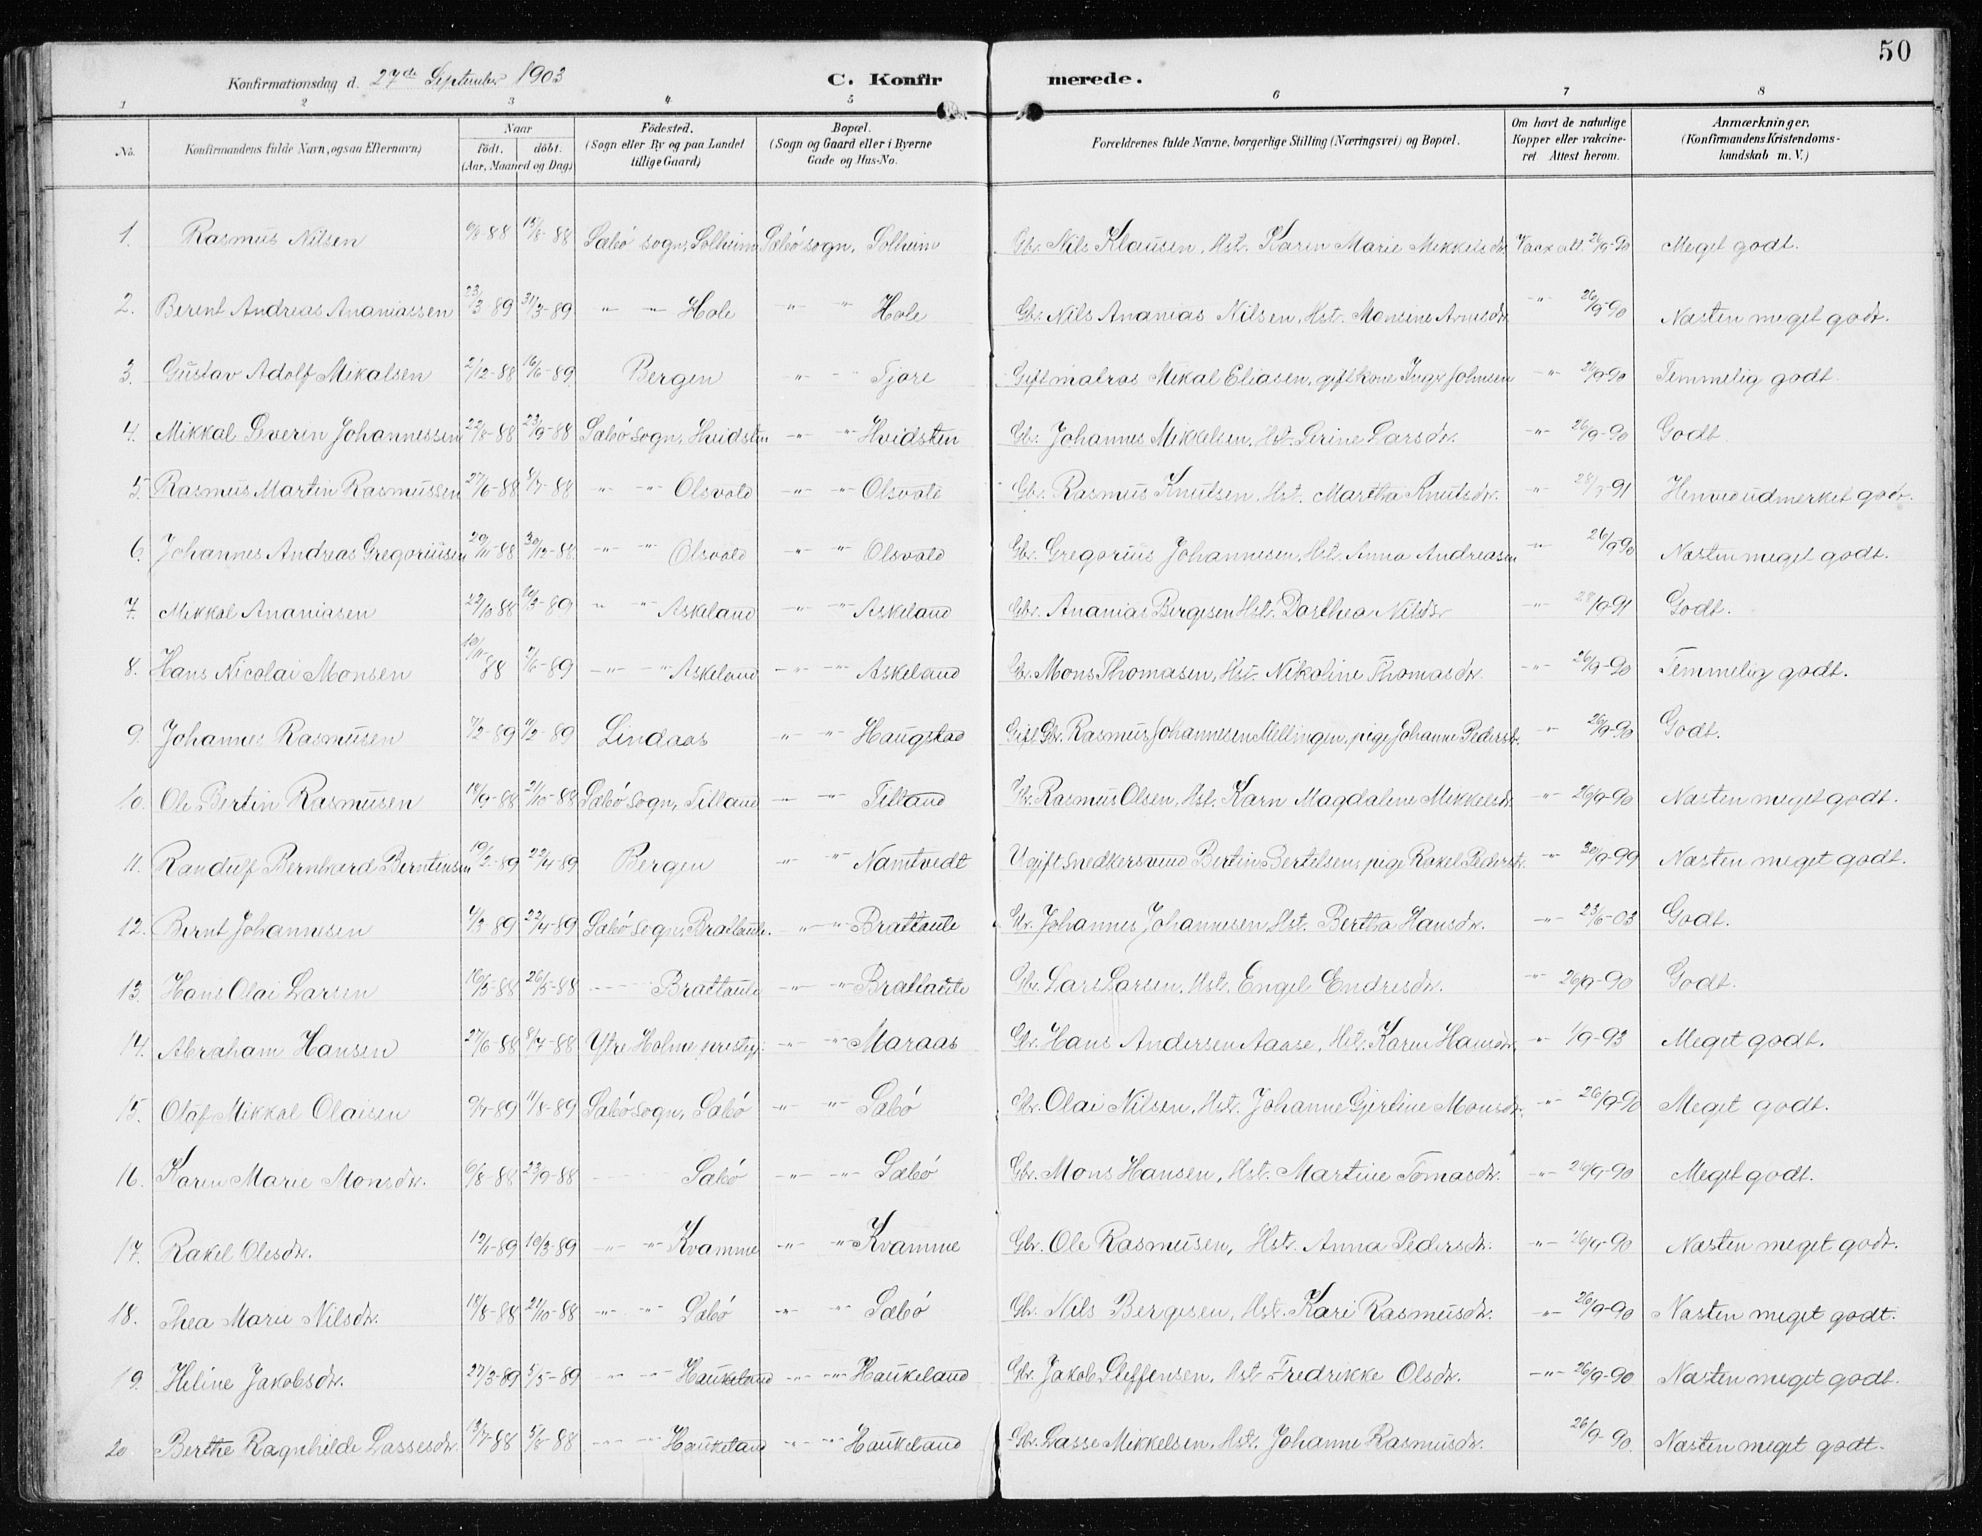 50
Konfirmationsdag d. 27de September 1903 C. Konfirmerede.
1 2 3 4 5 6 7 8
No. Konfirmandens fulde Navn, ogsaa Efternavn) Naar födt. döbt. (Aar, Maaned og Dag) Födested. (Sogn eller By og paa Landet tillige Gaard) Bopæl. (Sogn og Gaard eller i Byerne Gade og Hus-No. Forældrenes fulde Navne, borgerlige Stilling (Næringsvei) og Bopæl. Om havt de naturlige Kopper eller vakcineret Attest herom. Anmærkninger. (Konfirmandens Kristendomskundskab m. V.)
1. Rasmus Nilsen 6/8-88 15/8-88 Sæbö sogn, Solheim Sæbö sogn, Solheim Gbr. Nils Klausen, Hst. Karen Marie Mikkelsdr. Vacx att. 26/9-90 Meget godt.
2. Berent Andreas Ananiassen 23/3-89 31/3-89 " " Hole " " Hole Gbr. Nils Ananias Nilsen, Hst. Monsine Arnesdr. " 26/9-90 Næsten meget godt.
3. Gustav Adolf Mikalsen 2/12-88 16/6-89 Bergen " " Tjore Gift matros Mekal Eliasen, gift kone Inger Johnsen " 26/9-90 Temmelig godt.
4. Mikkal Severin Johannessen 22/8-88 23/9-88 Sæbö sogn, Hvidsten " " Hvidsten Gbr. Johannes Mikkelsen, Hst. Serine Larsdr. " 26/9-90 Godt.
5. Rasmus Martin Rasmussen 27/6-88 8/7-88 " " Olsvold " " Olsvold Gbr. Rasmus Knutsen, Hst. Martha Knutsdr. " 28/9-91 Henved udmerket godt.
6. Johannes Andreas Gregoriusen 20/11-88 30/12-88 " " Olsvold " " Olsvold Gbr. Gregorius Johannesen, Hst. Anna Andreasen " 26/9-90 Næsten meget godt.
7. Mikkal Ananiasen 22/10-88 10/3-89 " " Askeland " " Askeland Gbr. Ananias Bergesen Hst. Dorthea Nilsdr. " 28/9-91 Godt.
8. Hans Nicolai Monsen 10/11 88 2/6-89 " " Askeland " " Askeland Gbr. Mons Thomasen, Hst. Nikoline Thomasdr. " 26/9-90 Temmelig godt.
9. Johannes Rasmusen 7/2-89 11/2-89 Lindaas " " Haugstad Gift Gbr. Rasmus Johannesen Mellingen, pige Johanne Pedersdr. " 26/9-90 Godt.
10. Ole Bertin Rasmusen 18/9-88 21/10-88 Sæbö sogn, Titland " " Titland Gbr. Rasmus Olsen, Hst. Karn Magdalene Mikkelsdr. " 26/9-90 Næsten meget godt.
11. Randulf Bernhard Berntensen 19/2-89 22/4-89 Bergen " " Namtvedt Ugift snedkersvend Bertin Bertelsen, pige Rakel Pedersdr. " 30/9-99 Næsten meget godt.
12. Bernt Johannesen 4/3-89 22/4-89 Sæbö sogn, Brattaule. " " Brattaule Gbr. Johannes Johannesen, Hst. Bertha Hansdr. " 23/6-03 Godt.
13. Hans Olai Larsen 16/3-88 26/3-88 " Brattaule " " Brattaule Gbr. Lars Larsen, Hst. Engel Endresdr. " 26/9-90 Godt.
14. Abraham Hansen 27/6-88 8/7-88 Ytre Holme prestegj. " " Maraas Gbr. Hans Andersen Aaase, Hst. Karen Hansdr. " 1/9-93 Meget godt.
15. Olaf Mikkal Olaisen 9/7-89 11/8-89 Sæbö sogn, Sæbö " " Sæbö Gbr. Olai Nilsen, Hst. Johanne Gjertine Monsdr. " 26/9-90 Meget godt.
16. Karen Marie Monsdr. 6/8-88 23/9-88 " Sæbö " " Sæbö Gbr. Mons Hansen, Hst. Martine Tomasdr. " 26/9-90 Meget godt.
17. Rakel Olesdr. 12/1-89 10/3-89 " " Kvamme " " Kvamme Gbr. Ole Rasmusen, Hst. Anna Pedersdr. " 26/9-90 Næsten meget godt.
18. Thea Marie Nilsdr. 18/8-88 21/10-88 " " Sæbö " " Sæbö Gbr. Nils Bergesen, Hst. Kari Rasmusdr. " 26/9-90 Næsten meget godt.
19. Heline Jakobsdr. 27/3-89 5/5-89 " " Haukeland " " Haukeland Gbr. Jakob Steffensen, Hst. Fredrikke Olsdr. " 26/9-90 Næsten meget godt.
20 Berthe Ragnhilde Lassesdr. 13/7-88 5/8-88 " " Haukeland " " Haukeland Gbr. Lasse Mikkelsen, Hst. Johanne Rasmusdr. 26/9-90. Næsten meget godt.